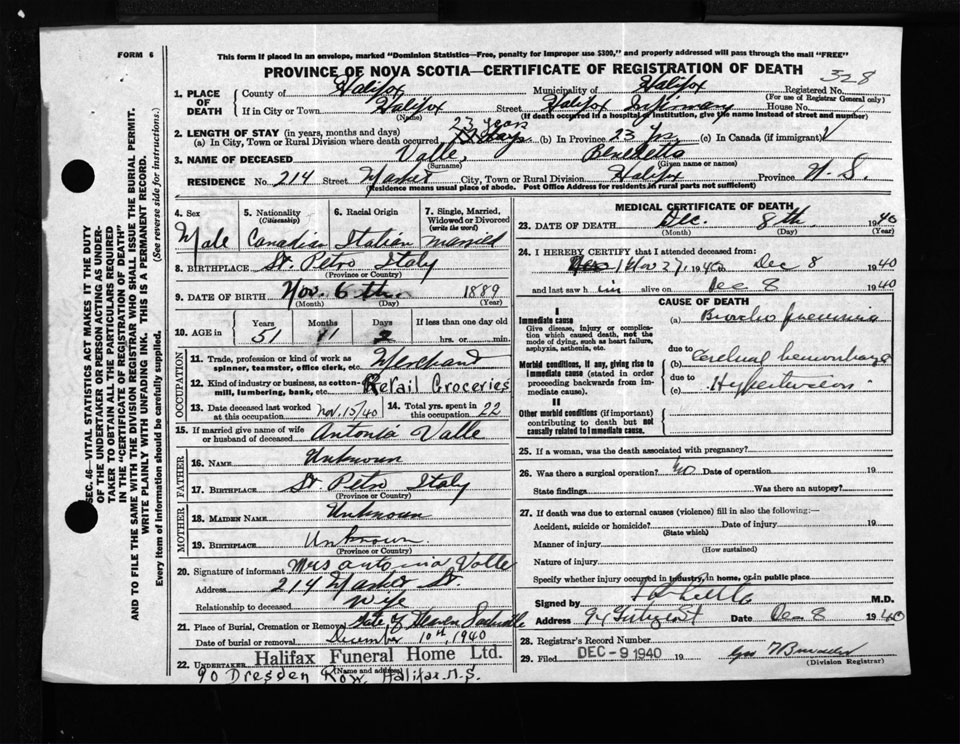 FORM 6
This form if placed in an envelope, marked "Dominion Statistics—Free, penalty for improper use $300," and properly addressed will pass through the mail "FREE"
PROVINCE OF NOVA SCOTIA—CERTIFICATE OF REGISTRATION OF DEATH
328
1. PLACE OF DEATH
County of Halifax Municipality of Halifax Registered No.
(For use of Registrar General only)
If in City or Town Halifax Street Halifax Infirmary House No.
(Name) (If death occurred in a hospital or institution, give the name instead of street and number)
23 years
2. LENGTH OF STAY (in years, months and days)
(a) In City, Town or Rural Division where death occurred days (b) In Province 23 yrs (c) In Canada (if immigrant)
3. NAME OF DECEASED Valle,
(Surname) (Given name or names)
RESIDENCE No. 214 Street Market City, Town or Rural Division Halifax Province N. S.
(Residence means usual place of abode. Post Office Address for residents in rural parts not sufficient)
4. Sex Male
5. Nationality (Citizenship) Canadian
6. Racial Origin Italian
7. Single, Married, Widowed or Divorced (write the word) Married
8. BIRTHPLACE St. Petro Italy
(Province or Country)
9. DATE OF BIRTH Nov. 6th. 1889
(Month) (Day) (Year)
10. AGE in Years Months Days If less than one day old
51 2 hrs. or min.
OCCUPATION
11. Trade, profession or kind of work as spinner, teamster, office clerk, etc. Merchant
12. Kind of industry or business, as cotton-mill, lumbering, bank, etc. Retail Groceries
13. Date deceased last worked at this occupation Nov. 15/40
14. Total yrs. spent in this occupation 22
15. If married give name of wife or husband of deceased Antonia Valle
FATHER
16. NAME Unknown
17. BIRTHPLACE St. Petro Italy
(Province or Country)
MOTHER
18. MAIDEN NAME Unknown
19. BIRTHPLACE Unknown
(Province or Country)
20. Signature of informant Mrs Antonia Valle
Address 214 Market St.
Relationship to deceased wife
21. Place of Burial, Cremation or Removal Gate of Heaven Sackville
Date of burial or removal December 10th, 1940
22. UNDERTAKER Halifax Funeral Home Ltd.
(Name and address)
90 Dresden Row, Halifax. N.S.
MEDICAL CERTIFICATE OF DEATH
23. DATE OF DEATH Dec. 8th. 1940
(Month) (Day) (Year)
24. I HEREBY CERTIFY that I attended deceased from:
Nov 27 1940 to Dec 8 1940
and last saw h im alive on Dec 8 1940
CAUSE OF DEATH
I
Immediate cause
Give disease, injury or complication which caused death, not the mode of dying, such as heart failure, asphyxia, asthenia, etc.
(a) Broncho pneumonia
due to
Morbid conditions, if any, giving rise to immediate cause (stated in order proceeding backwards from immediate cause).
Cerebral hemorrhage
due to
(c) Hypertension
II
Other morbid conditions (if important) contributing to death but not causally related to immediate cause.
25. If a woman, was the death associated with pregnancy?
26. Was there a surgical operation? no Date of operation 19
State findings Was there an autopsy?
27. If death was due to external causes (violence) fill in also the following:—
Accident, suicide or homicide? Date of injury 19
(State which)
Manner of injury
(How sustained)
Nature of injury
Specify whether injury occurred in industry, in home, or in public place
Signed by M.D.
Address Date Dec 8 1940
28. Registrar's Record Number
29. Filed DEC - 9 1940 19
(Division Registrar)
SEC. 46—VITAL STATISTICS ACT MAKES IT THE DUTY
OF THE UNDERTAKER OR PERSON ACTING AS UNDERTAKER TO OBTAIN ALL THE PARTICULARS REQUIRED
IN THE "CERTIFICATE OF REGISTRATION OF DEATH"
AND TO FILE THE SAME WITH THE DIVISION REGISTRAR WHO SHALL ISSUE THE BURIAL PERMIT.
WRITE PLAINLY WITH UNFADING INK. THIS IS A PERMANENT RECORD.
Every item of information should be carefully supplied. (See reverse side for instructions.)